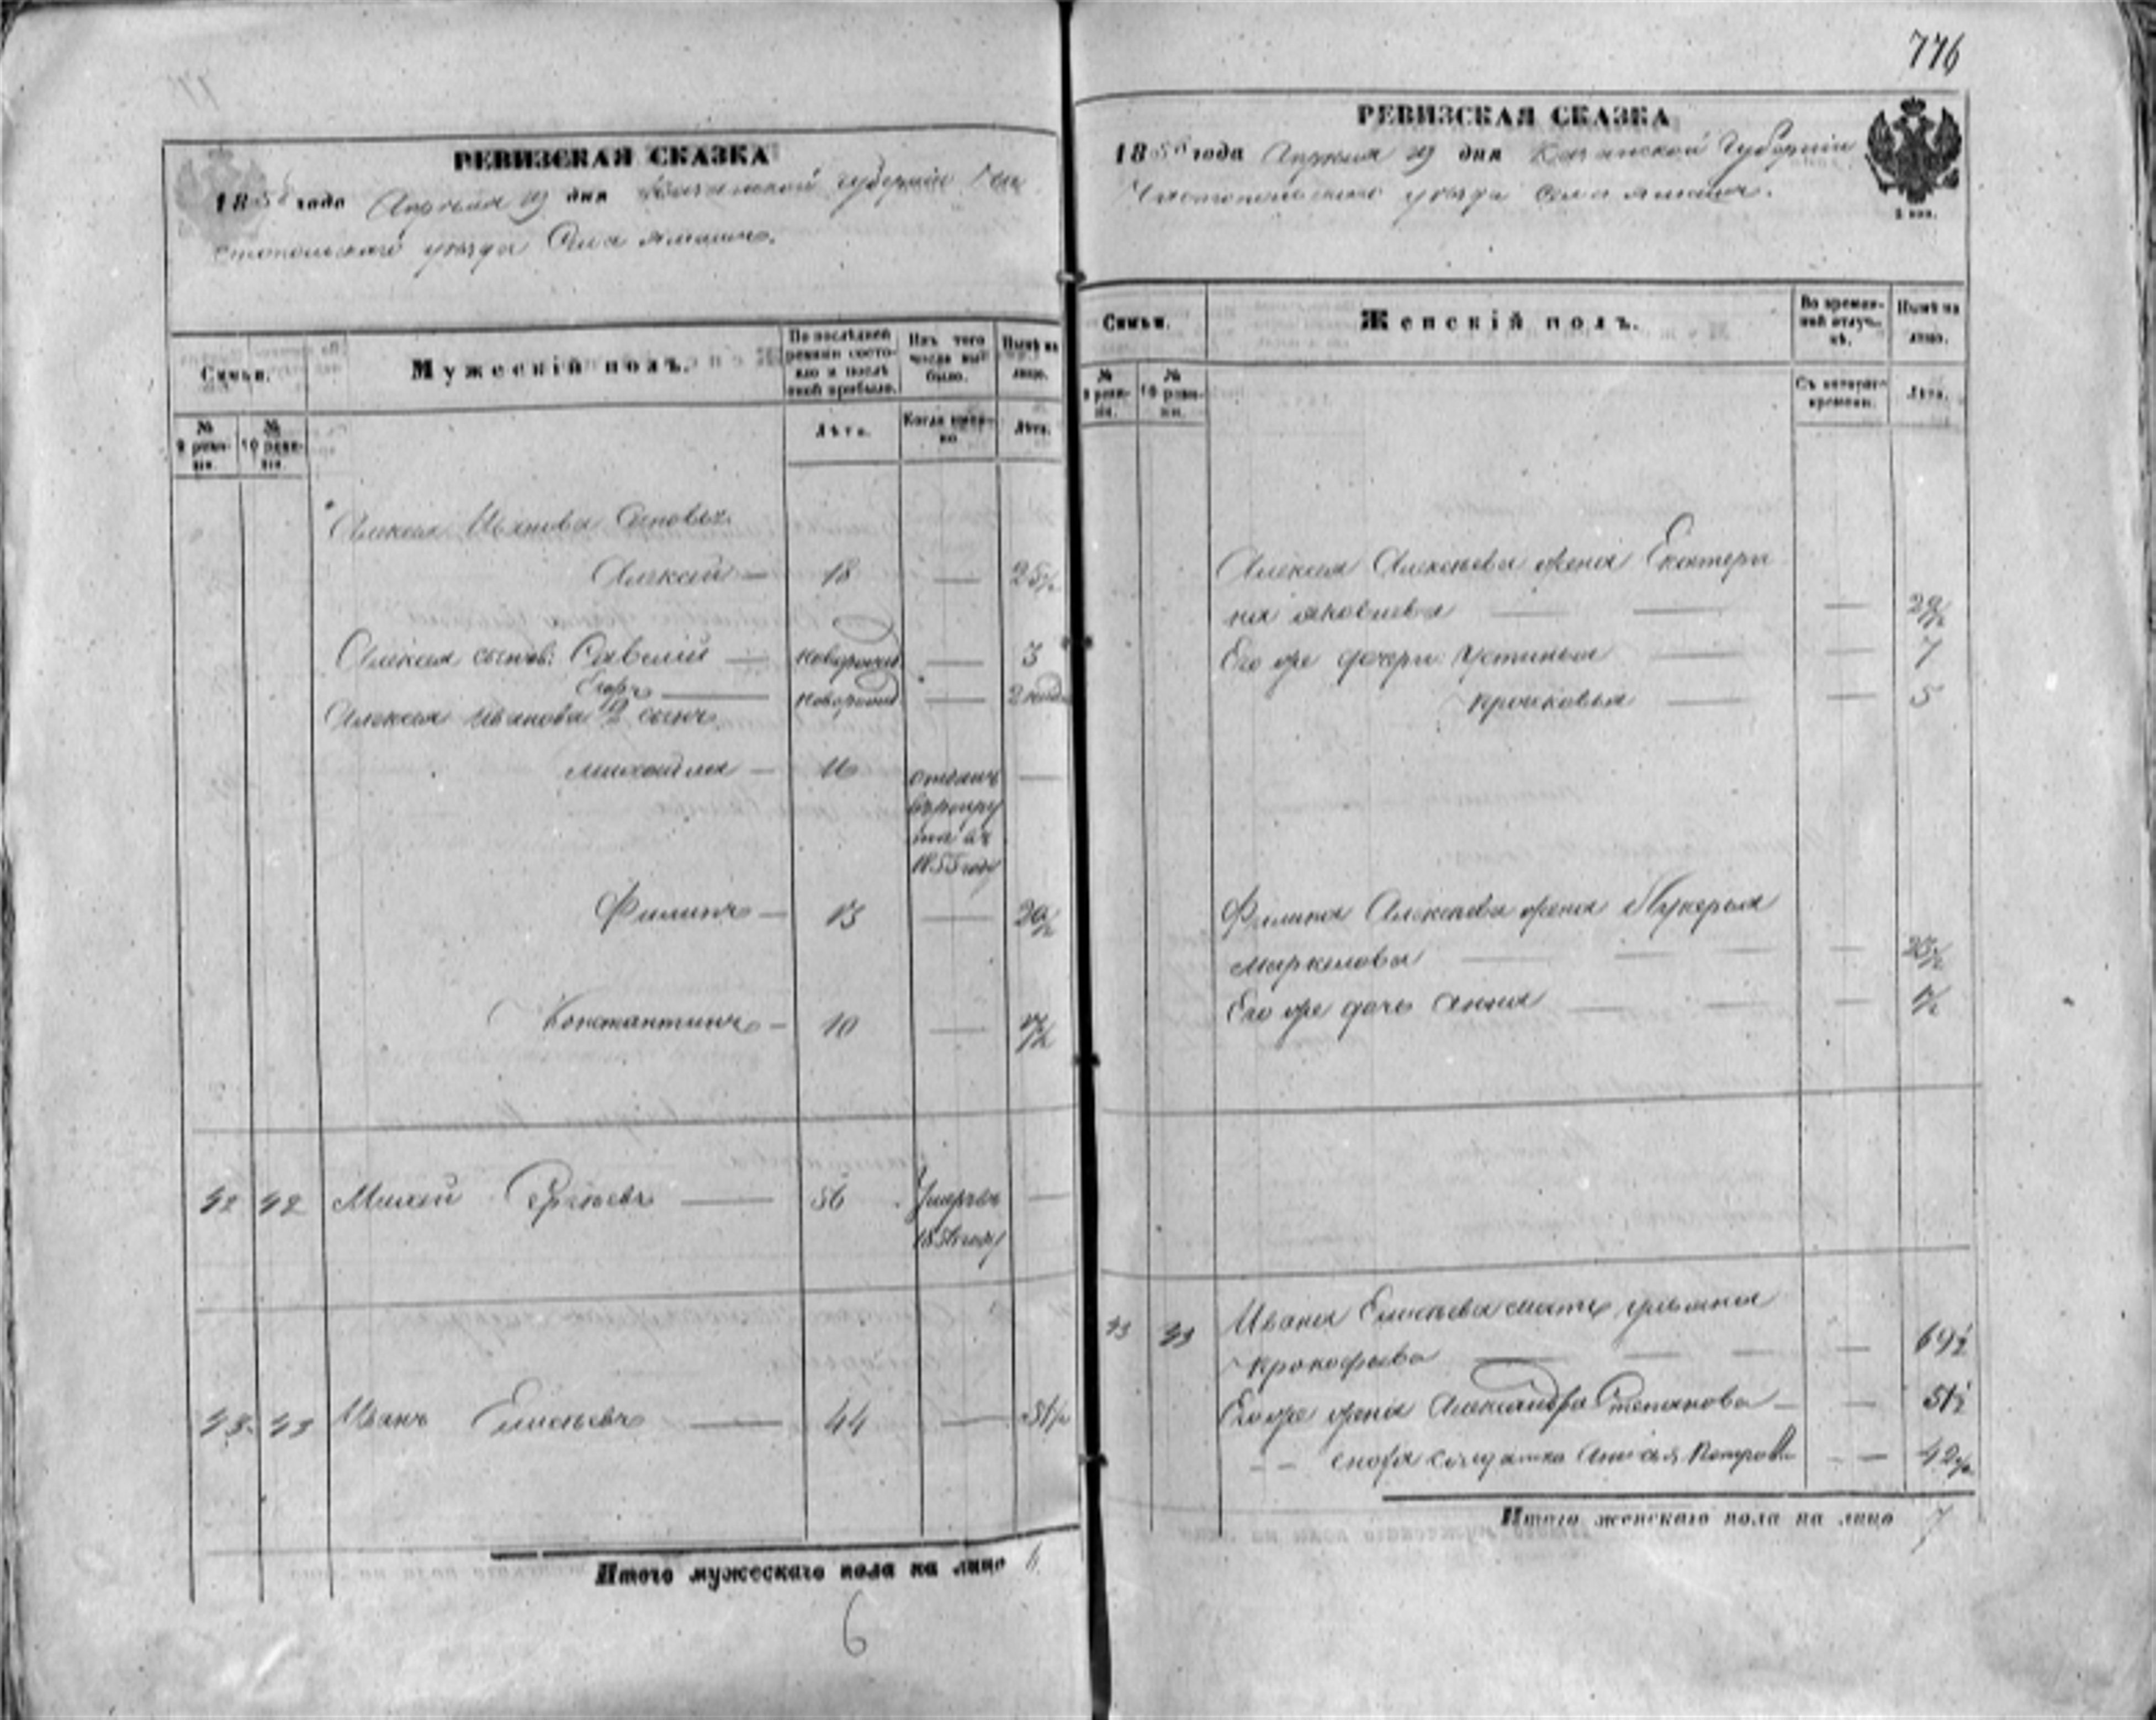 776
РЕВИЗСКАЯ СКАЗКА
1858 года Апреля 19 дня Казанской губерніи Чи
стопольскаго уѣзда Села Ямашъ.
Семьи.
Мужескій полъ.
По послѣдней ревизіи состояло и послѣ оной прибыло.
Изъ того числа выбыло.
Нынѣ на лицо.
№ 9 ревизіи.
№ 10 ревизіи.
Лѣта.
Когда именно
Лѣта.
Алексея Иванова Сыновья
Алексѣй — 18 — 25½
Алексея сынов: Савелій — новорожд — 3
Егоръ — новорожд — 2 нед
Алексея Иванова 2 сынъ
Михайла — 16 отданъ —
въ рекру
та въ
1855 году
Филипъ — 13 — 20½
Константинъ — 10 — 17½
42 42 Михей Сергѣевъ — 56 Умеръ въ —
185 году
43 43 Иванъ Елисѣевъ — 44 — 51½
Итого мужескаго пола на лицо 6
6
РЕВИЗСКАЯ СКАЗКА
1858 года Апреля 19 дня Казанской Губерніи
Чистопольскаго уѣзда Села Ямашъ.
2 коп.
Семьи.
Женскій полъ.
Во временной отлучкѣ.
Нынѣ на лицо.
№ 9 ревизіи.
№ 10 ревизіи.
Съ котораго времени.
Лѣта.
Алексея Алексѣева жена Екатери
на Яковлева — — — 29½
Его же дочери: Устинья — — 7
Просковья — — 5
Филипа Алексѣева жена Лукерья
Маркелова — — — 23½
Его же дочь Анна — — — 1½
43 43 Ивана Елисѣева мать Ульяна
Прокофьева — — — — 69½
Его же жена Александра Степанова — — 51½
— — сноха солдатка Петрова — — 42½
Итого женскаго пола на лицо 7